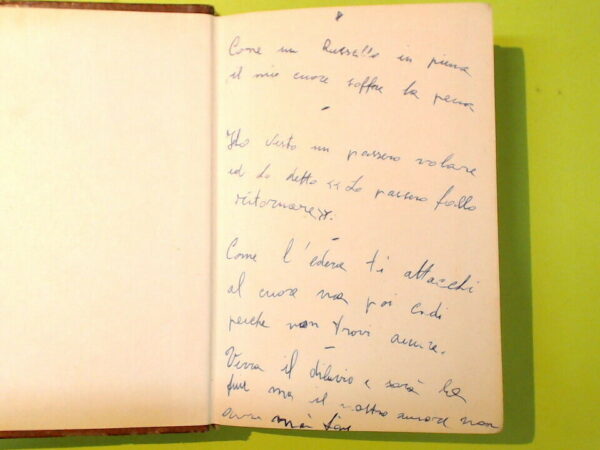 Come un Ruscello in piena
il mio cuore soffre la pena
Ho visto un passero volare
ed ho detto «Lo passero fallo
ritornare».
Come l'edera ti attacchi
al cuore non poi cadi
perche non trovi amore.
Verra il diluvio e sarà la
fine ma il nostro amore non
avra mai fine